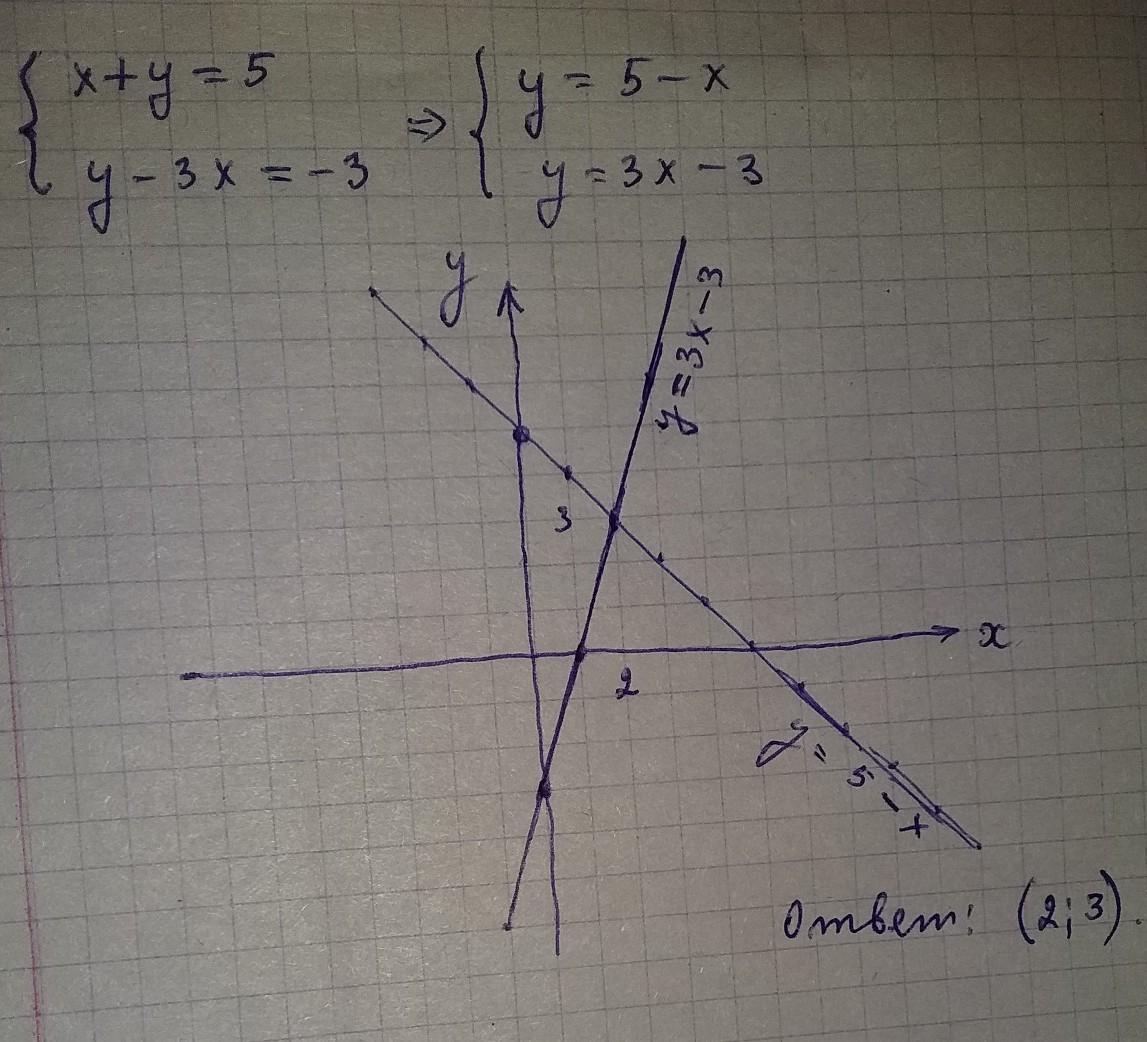 { x + y = 5 ⇒ { y = 5 - x
y - 3x = -3 y = 3x - 3
y
y = 3x - 3
3
x
2
y = 5 - x
Ответ: (2; 3).